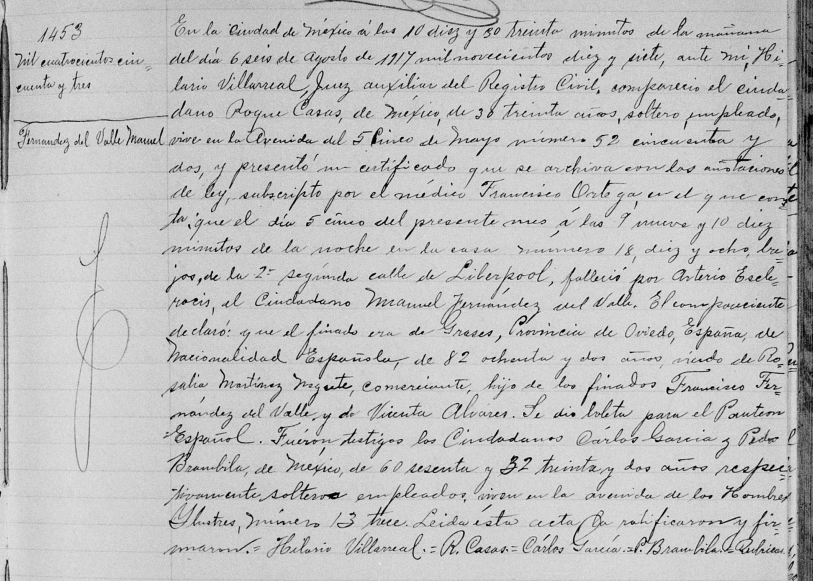 1453
Mil cuatrocientos cin-
cuenta y tres
Fernandez del Valle Manuel
En la ciudad de México á las 10 diez y 30 treinta minutos de la mañana
del dia 6 seis de Agosto de 1917 mil novecientos diez y siete, ante mi, Hi-
lario Villarreal, Juez auxiliar del Registro Civil, compareció el ciuda-
dano Roque Casas, de México, de 30 treinta años, soltero, empleado,
vive en la Avenida del 5 Cinco de Mayo número 52 cincuenta y
dos, y presentó un certificado que se archiva con las anotaciones
de ley, subscripto por el médico Francisco Ortega, en el que cons-
ta: que el dia 5 cinco del presente mes á las 9 nueve y 10 diez
minutos de la noche en la casa número 18, diez y ocho, ba-
jos, de la 2ª segunda calle de Liberpool, falleció por Arterio Escle-
rocis, el Ciudadano Manuel Fernández del Valle. El compareciente
declaró: que el finado era de Grases, Provincia de Oviedo, España, de
Nacionalidad Española, de 82 ochenta y dos años, viudo de Ro-
salia Martinez, comerciante, hijo de los finados Francisco Fer-
nández del Valle, y de Vicenta Alvares. Se dio boleta para el Panteon
Español. Fuerón testigos los Ciudadanos Cárlos Garcia y Pedro
Brambila, de México, de 60 sesenta y 32 treinta y dos años respec-
tivamente, solteros empleados, viven en la avenida de los Hombres
Ylustres, número 13 trece. Leida ésta acta la ratificaron y fir-
maron.= Hilario Villarreal.= R. Casas.= Cárlos García.= P. Brambila.= Rubricas.